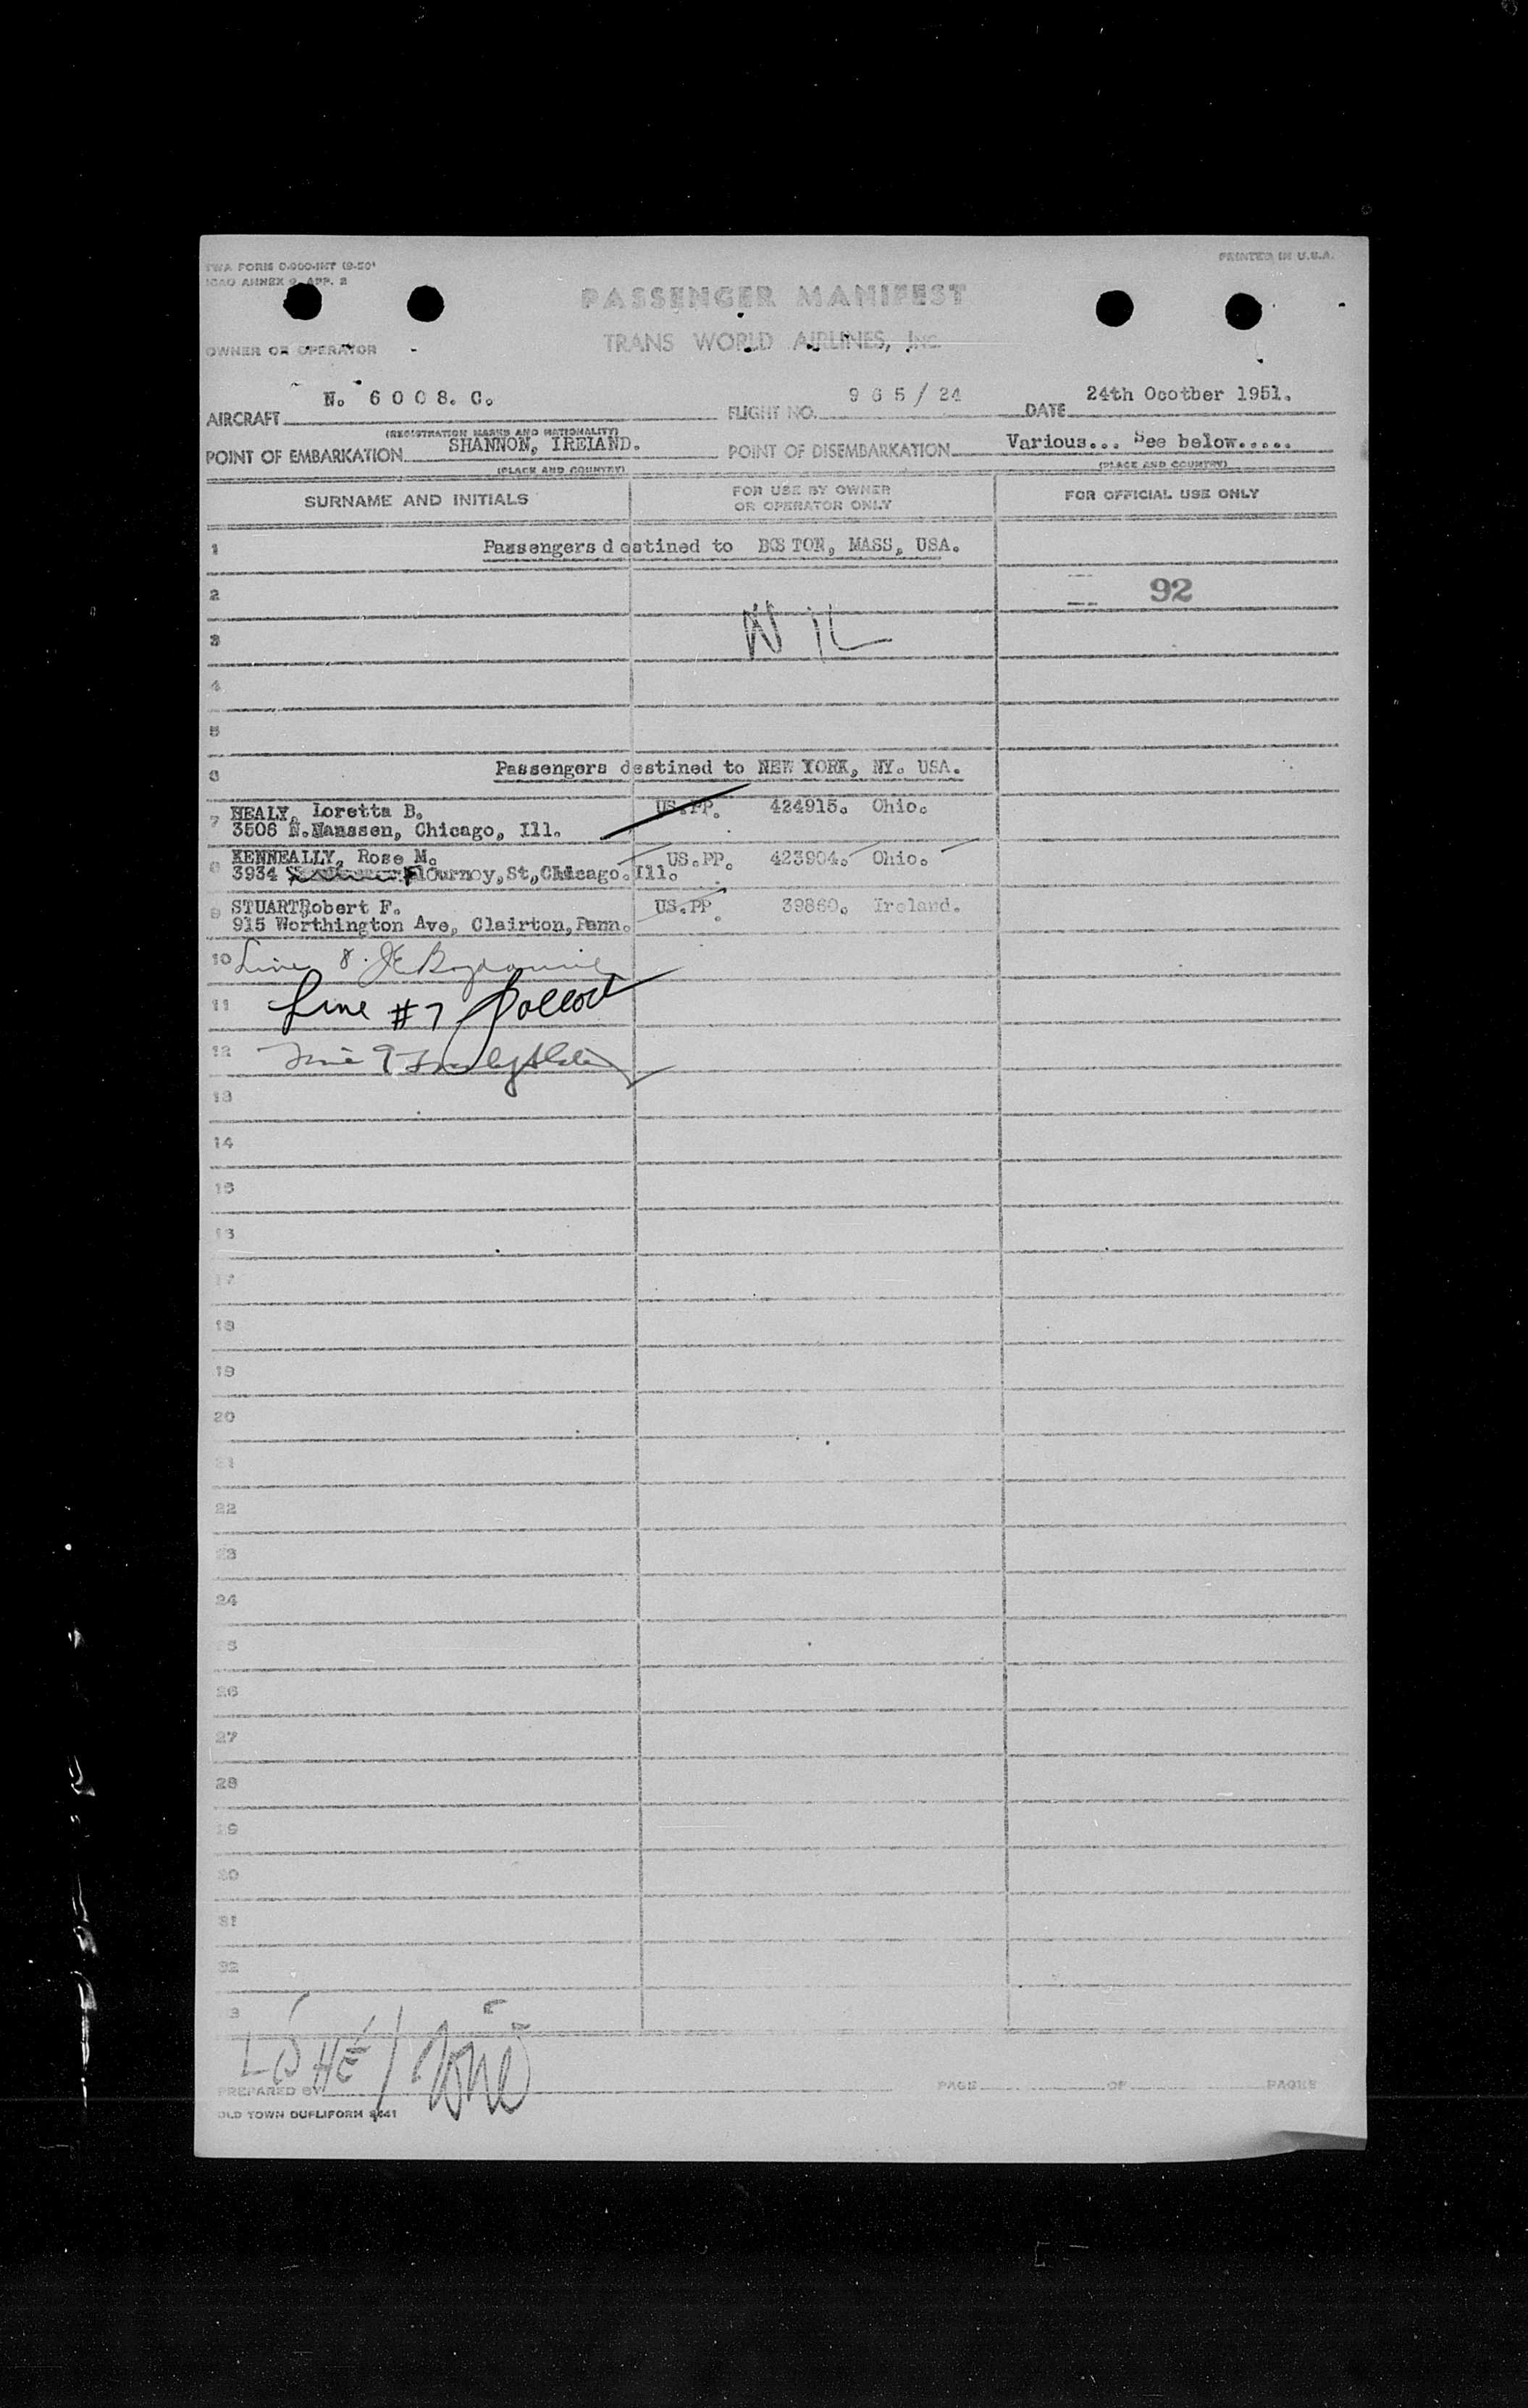 TWA FORM C-900-INT (9-50)
ICAO ANNEX 9-APP. 2
PRINTED IN U.S.A.
PASSENGER MANIFEST
TRANS WORLD AIRLINES, INC.
OWNER OR OPERATOR
AIRCRAFT N. 6 0 0 8. C. FLIGHT NO. 9 6 5 / 24 DATE 24th Ocotber 1951.
(REGISTRATION MARKS AND NATIONALITY)
POINT OF EMBARKATION SHANNON, IRELAND. POINT OF DISEMBARKATION Various... See below.....
(PLACE AND COUNTRY) (PLACE AND COUNTRY)
SURNAME AND INITIALS FOR USE BY OWNER OR OPERATOR ONLY FOR OFFICIAL USE ONLY
1 Passengers destined to BOSTON, MASS, USA.
2 92
3 NIL
4
5
6 Passengers destined to NEW YORK, NY. USA.
7 HEALY, Loretta B. US.PP. 424915. Ohio.
3506 N.Hanssen, Chicago, Ill.
8 KENNEALLY, Rose M. US.PP. 423904. Ohio.
3934 Flournoy,St,Chicago.Ill.
9 STUARTRobert F. US.PP. 39860. Ireland.
915 Worthington Ave, Clairton,Penn.
10 Line 8.
11 Line #7 Pollock
12 Line 9
13
14
15
16
17
18
19
20
21
22
23
24
25
26
27
28
29
30
31
32
3
PREPARED BY PAGE OF PAGES
OLD TOWN DUPLIFORM 8441